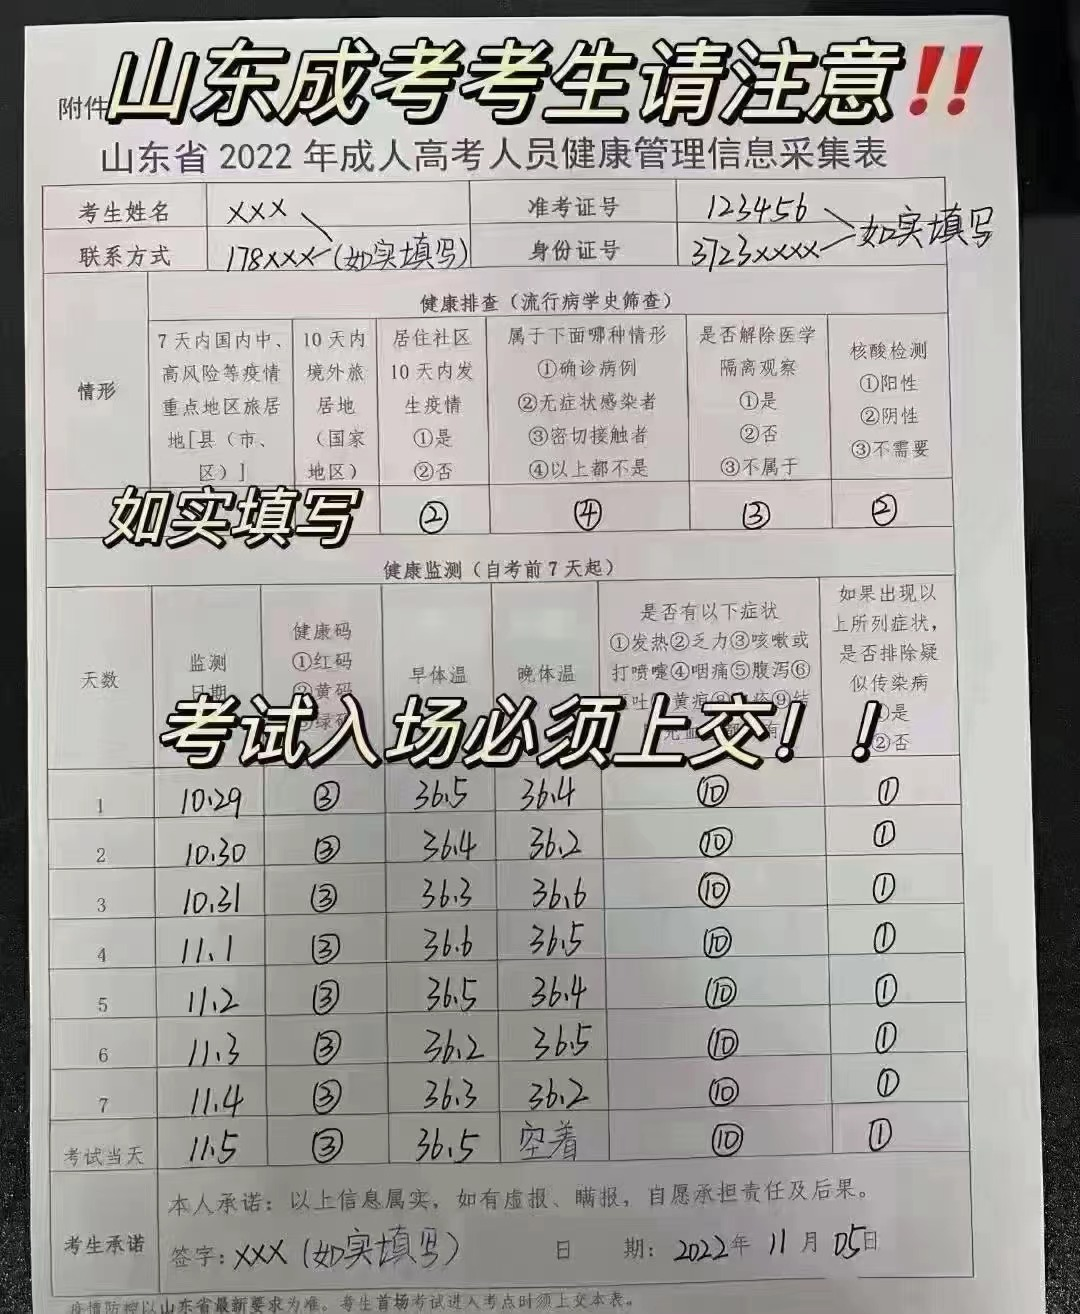 山东成考考生请注意‼️
附件
山东省 2022 年成人高考人员健康管理信息采集表
考生姓名 XXX 准考证号 123456
联系方式 178XXX (如实填写) 身份证号 3723XXXX 如实填写
健康排查（流行病学史筛查）
情形
7 天内国内中、
高风险等疫情
重点地区旅居
地[县（市、
区）]
10 天内
境外旅
居地
（国家
地区）
居住社区
10 天内发
生疫情
①是
②否
属于下面哪种情形
①确诊病例
②无症状感染者
③密切接触者
④以上都不是
是否解除医学
隔离观察
①是
②否
③不属于
核酸检测
①阳性
②阴性
③不需要
如实填写 ② ④ ③ ②
健康监测（自考前 7 天起）
天数
监测
日期
健康码
①红码
②黄码
绿码
早体温
晚体温
是否有以下症状
①发热②乏力③咳嗽或
打喷嚏④咽痛⑤腹泻⑥
吐 黄疸 ⑨结
有
如果出现以
上所列症状，
是否排除疑
似传染病
①是
②否
考试入场必须上交！！
1 10.29 ③ 36.5 36.4 ⑩ ①
2 10.30 ③ 36.4 36.2 ⑩ ①
3 10.31 ③ 36.3 36.6 ⑩ ①
4 11.1 ③ 36.6 36.5 ⑩ ①
5 11.2 ③ 36.5 36.4 ⑩ ①
6 11.3 ③ 36.2 36.5 ⑩ ①
7 11.4 ③ 36.3 36.2 ⑩ ①
考试当天 11.5 ③ 36.5 空着 ⑩ ①
考生承诺
本人承诺：以上信息属实，如有虚报、瞒报，自愿承担责任及后果。
签字：XXX (如实填写) 日 期：2022年 11 月 05日
疫情防控以山东省最新要求为准。考生首场考试进入考点时须上交本表。